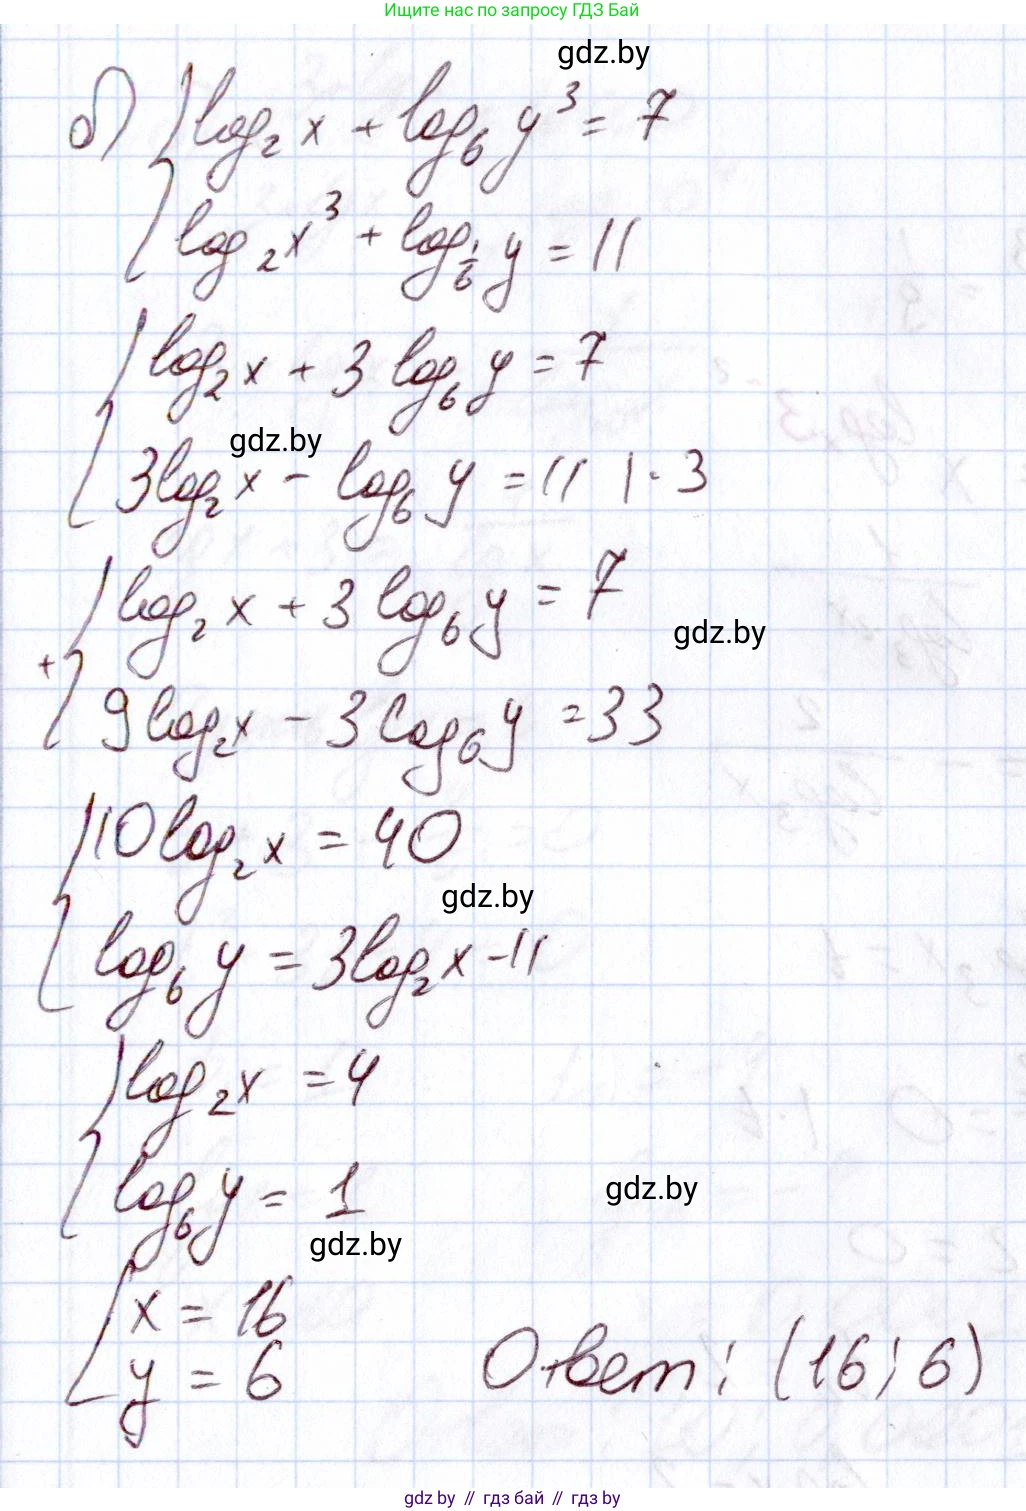 Ищите нас по запросу ГДЗ Бай
gdz.by
б) { log₂ x + log₆ y³ = 7
log₂ x³ + log_{1/6} y = 11
{ log₂ x + 3 log₆ y = 7
gdz.by
3 log₂ x - log₆ y = 11 | · 3
+ { log₂ x + 3 log₆ y = 7
gdz.by
9 log₂ x - 3 log₆ y = 33
{ 10 log₂ x = 40
gdz.by
log₆ y = 3 log₂ x - 11
{ log₂ x = 4
log₆ y = 1
gdz.by
gdz.by
{ x = 16
y = 6
Ответ: (16; 6)
gdz.by // гдз бай // гдз by